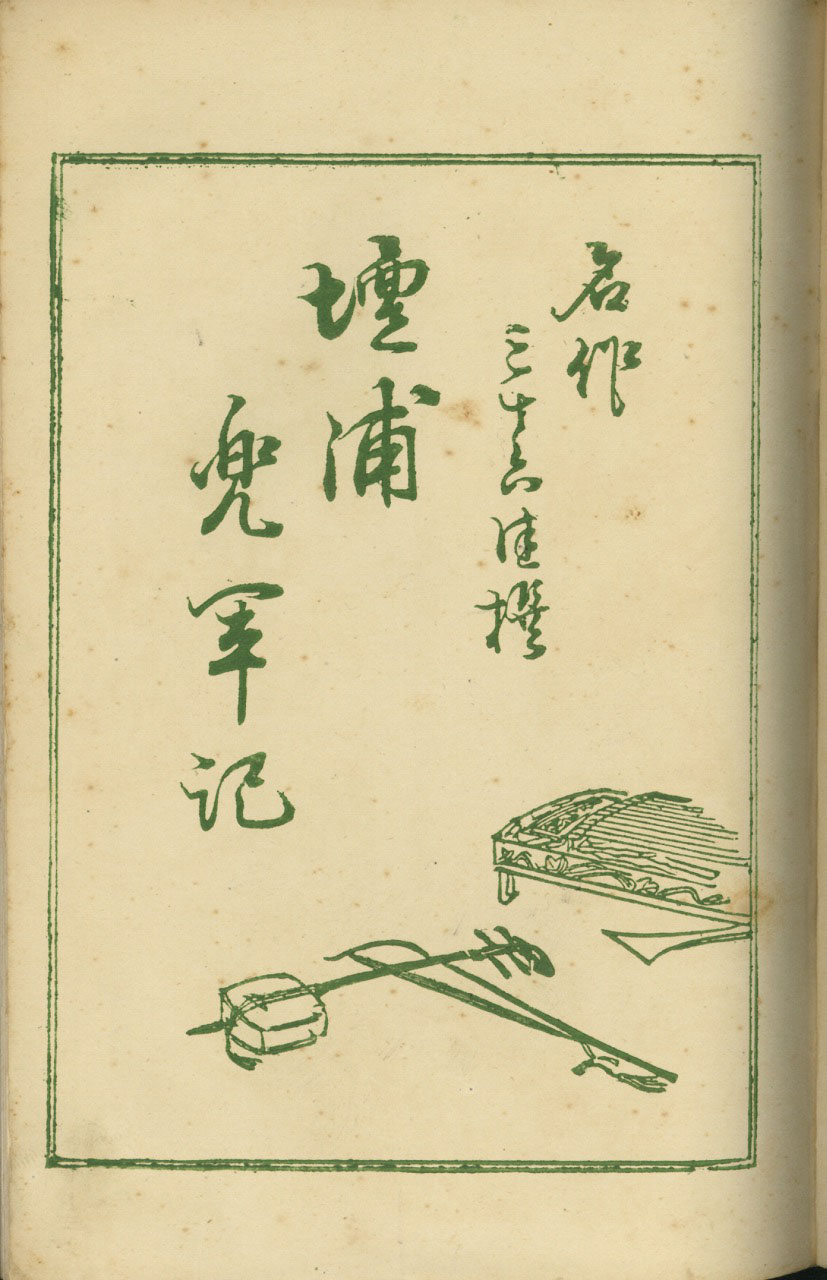 名作
三十六佳撰
壇浦
兜軍記